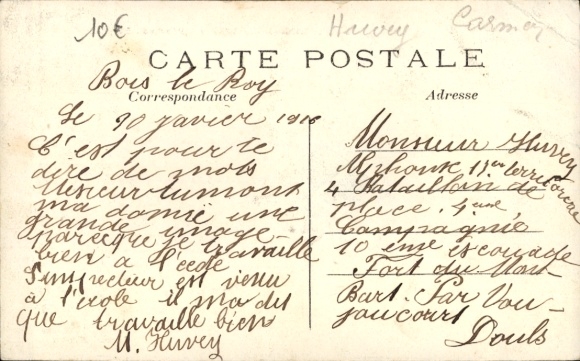 10€
Huvey Carmen
CARTE POSTALE
Bois le Roy
Correspondance
Adresse
Le 20 janvier 1916
C'est pour te
dire de mots
Mesieur Lumont
ma donné une
grande image
parceque je travaille
bien a l'ecole
l'inspecteur est venu
à l'école il ma dit
que travaille bien
M. Huvey
Monsieur Huvey
Alphonse 11em territoriale
4 Bataillon de
place. 4eme
Compagnie
10 eme escouade
Fort du Mont
Bart. Par Vou-
jaucourt
Doubs